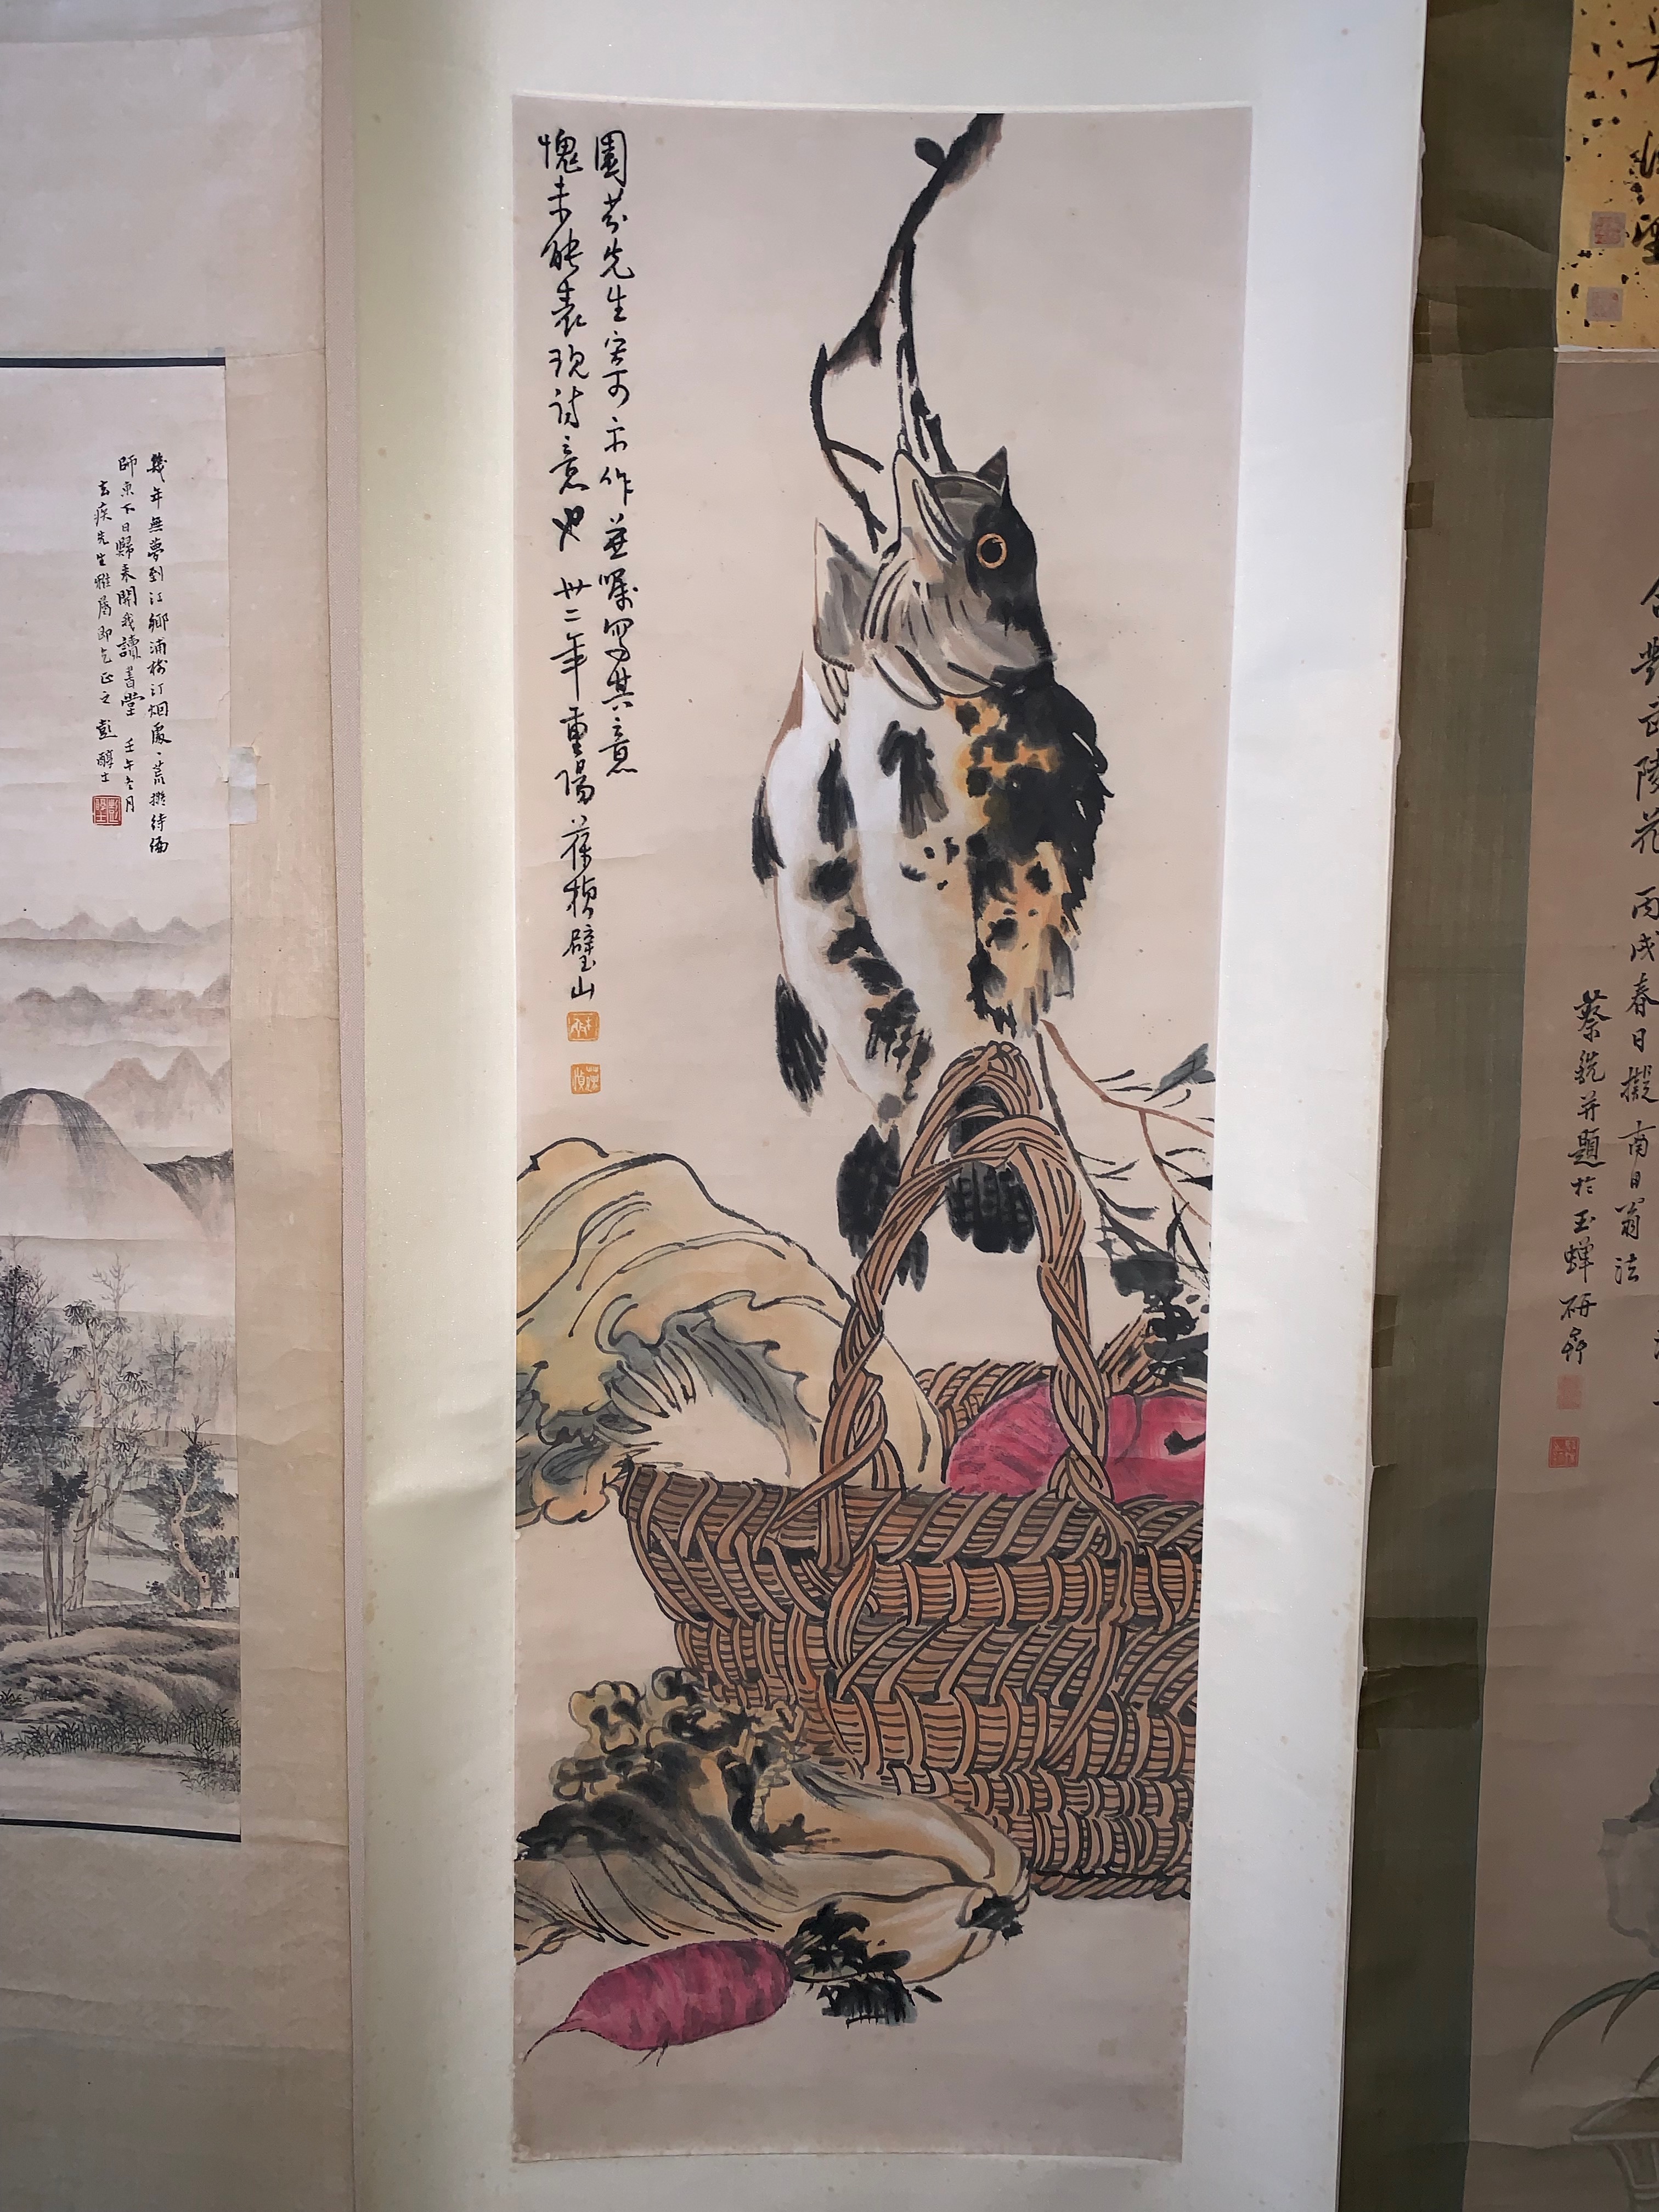 園芬先生寄可示作並囑寫其意
愧未能表現詩意也 卅二年重陽 葆楨璧山
幾年無夢到江鄉浦樹汀烟處、荒擬待倆
師東下日歸來開我讀書堂 壬午冬月
去疾先生雅屬即乞正之 彭醇士
武陵花 丙戌春日擬南田翁法
蔡銑并題於玉蟬研齋